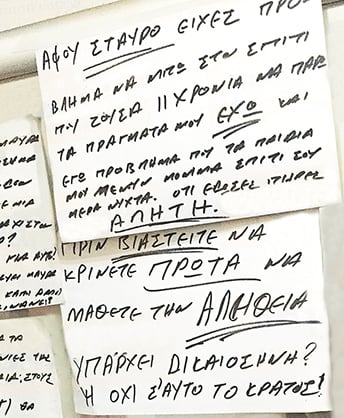 ΑΦΟΥ ΣΤΑΥΡΟ ΕΙΧΕΣ ΠΡΟ-
ΒΛΗΜΑ ΝΑ ΜΠΩ ΣΤΟ ΣΠΙΤΙ
ΠΟΥ ΖΟΥΣΑ 11 ΧΡΟΝΙΑ ΝΑ ΠΑΡΩ
ΤΑ ΠΡΑΓΜΑΤΑ ΜΟΥ ΕΧΩ ΚΑΙ
ΕΓΩ ΠΡΟΒΛΗΜΑ ΠΟΥ ΤΑ ΠΑΙΔΙΑ
ΜΟΥ ΜΕΝΟΥΝ ΜΟΝΙΜΑ ΣΠΙΤΙ ΣΟΥ
ΜΕΡΑ ΝΥΧΤΑ. ΟΤΙ ΕΔΩΣΕΣ ΠΗΡΕΣ
ΑΛΗΤΗ.
ΠΡΙΝ ΒΙΑΣΤΕΙΤΕ ΝΑ
ΚΡΙΝΕΤΕ ΠΡΩΤΑ ΝΑ
ΜΑΘΕΤΕ ΤΗΝ ΑΛΗΘΕΙΑ
ΥΠΑΡΧΕΙ ΔΙΚΑΙΟΣΗΝΗ?
Ή ΟΧΙ Σ'ΑΥΤΟ ΤΟ ΚΡΑΤΟΣ!